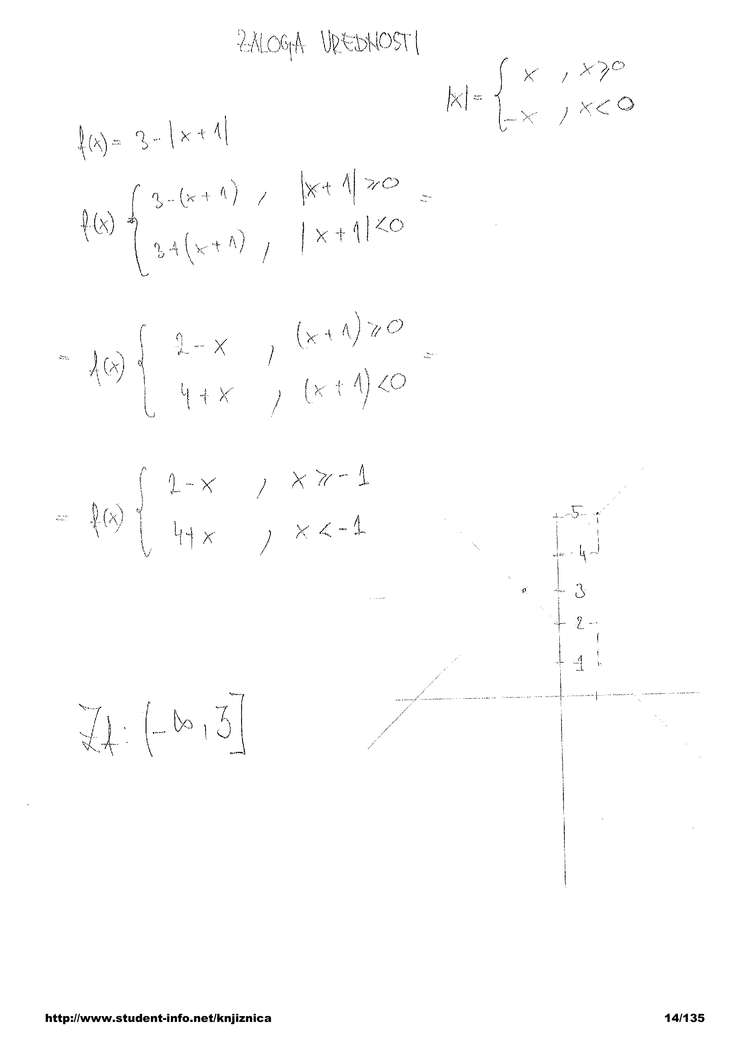 ZALOGA VREDNOSTI
|x| = { x , x ≥ 0
-x , x < 0
f(x) = 3 - |x + 1|
f(x) = { 3 - (x + 1) , |x + 1| ≥ 0 =
3 + (x + 1) , |x + 1| < 0
= f(x) { 2 - x , (x + 1) ≥ 0 =
4 + x , (x + 1) < 0
= f(x) { 2 - x , x ≥ -1
4 + x , x < -1
5
4
3
2
1
Zf: (-∞, 3]
http://www.student-info.net/knjiznica 14/135